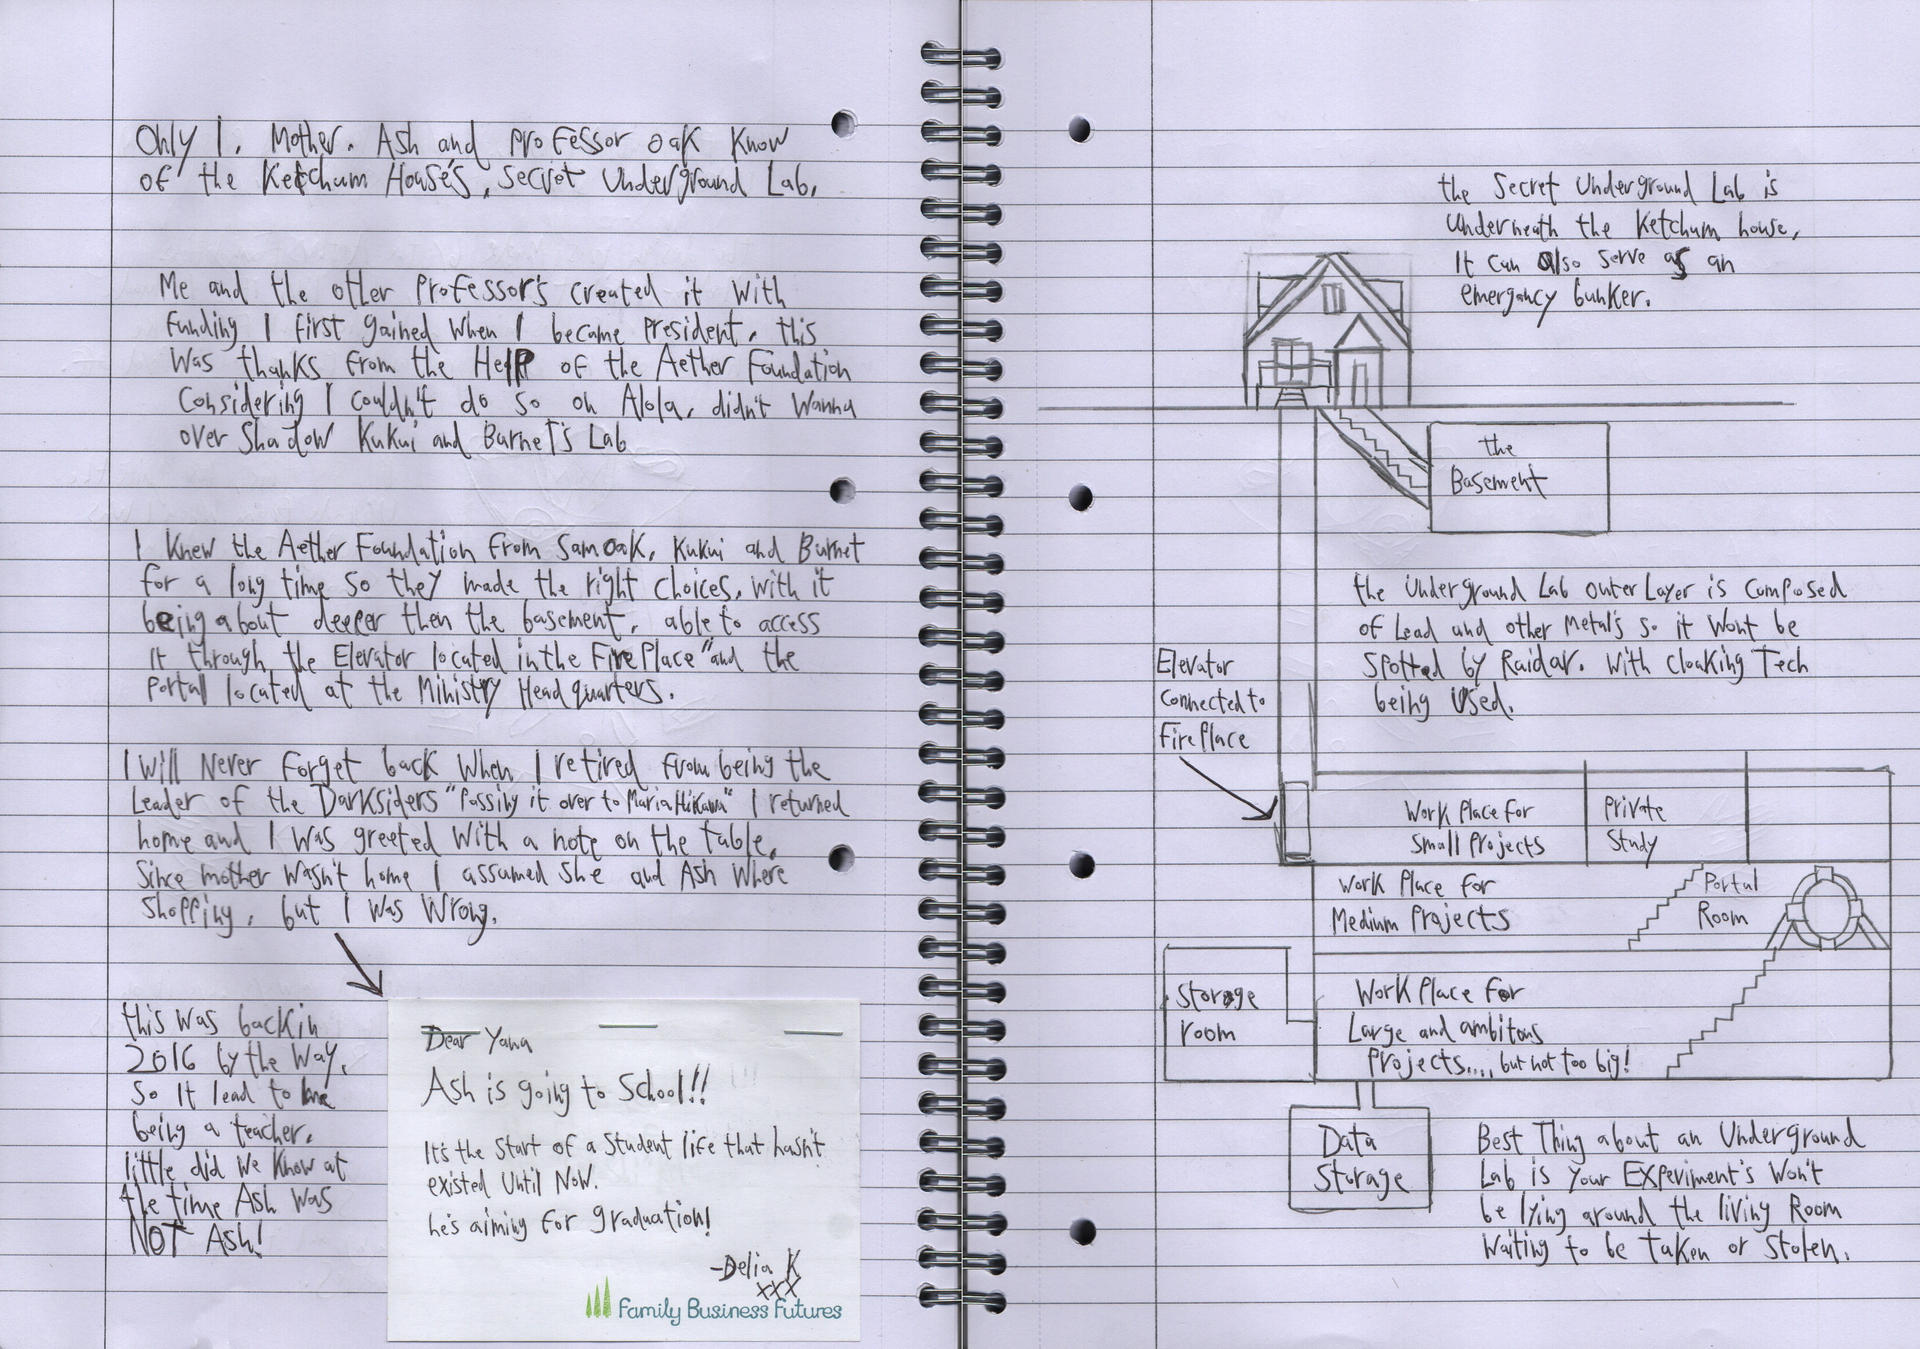 Only I, Mother, Ash and professor oak know
of the Ketchum House's, secret Underground Lab.
Me and the other professor's created it with
funding I first gained when I became president, this
was thanks from the Help of the Aether Foundation
Considering I couldn't do so on Alola, didn't wanna
over shadow Kukui and Burnet's Lab
I knew the Aether Foundation from Sam oak, Kukui and Burnet
for a long time so they made the right choices, with it
being about deeper then the basement, able to access
it through the Elevator located in the Fire place "and the
portal located at the Ministry Headquarters.
I will Never forget back when I retired from being the
Leader of the Darksiders "passing it over to Maria Hikawa" I returned
home and I was greeted with a note on the table,
Since mother wasn't home I assumed she and Ash where
shopping, but I was wrong.
this was back in
2016 by the way,
so it lead to me
being a teacher.
little did we know at
the time Ash was
NOT Ash!
Dear Yana
Ash is going to School!!
It's the start of a student life that hasn't
existed Until Now.
he's aiming for graduation!
-Delia K
xxx
Family Business Futures
the Secret Underground Lab is
Underneath the Ketchum house,
It can also serve as an
emergancy bunker.
the
Basement
the Underground Lab outer Layer is composed
of Lead and other Metal's so it wont be
spotted by Raidar. With cloaking Tech
being used.
Elevator
connected to
Fire place
Work place for
small projects
private
study
Work place for
Medium projects
Portal
Room
Storage
room
Work place for
Large and ambitous
projects...., but not too big!
Data
Storage
Best Thing about an Underground
Lab is your Experiment's Won't
be lying around the living Room
waiting to be taken or stolen.